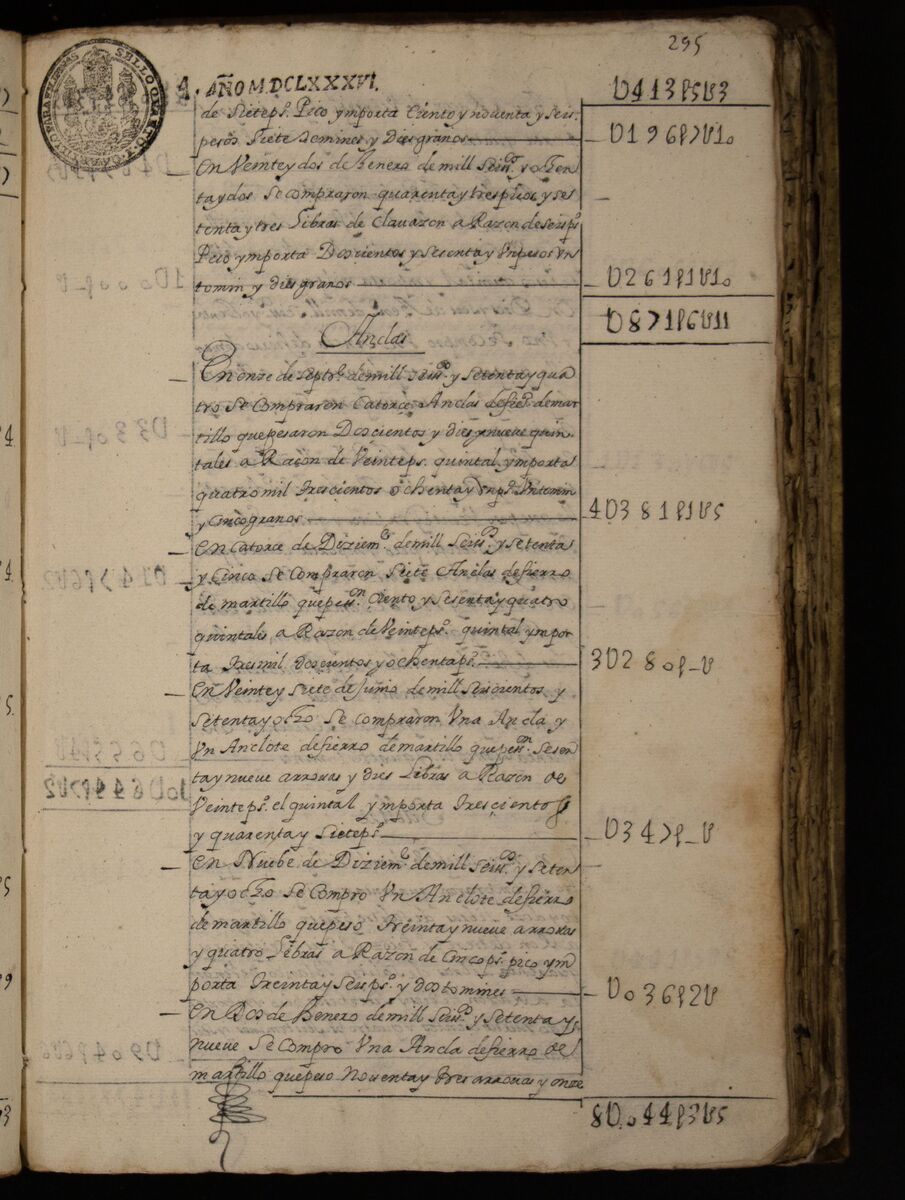 295
SELLO QUARTO
1. AÑO M DCLXXXVI. U413p5U3
de Sieteps. Pico ymporta Ciento y nouenta y seis.
pesos Siete Domines y Diesgranos U196p7U10
En Veinteydos de Henero de mill Seisos. y ochen
taydos se compraron quarentaytrespicos y ses
tentaytres Libras de Clauazon a Razon de Seisps.
Pico ymporta Doscientos y Sesentay Unpesos Un
tomin y diesgranos U261p1U10
U871p6U11
Anclas
En onze de Septre. demill seisos. y Setentayqua
tro Se Compraron Catorce Anclas defieo. demar
tillo quepesaron Doscientos y diesynueve quin
tales a Razon de Veinteps. quintal ymporta
quatromil trescientos ochentay Unps. Untomin
y Cincogranos 4U381p1U5
En Catorce de Diziemre. demill Seisos. y Setenta
y Cinco Se Compraron Siete Anclas defierro
de martillo quepesn. Ciento y Sesentayquatro
quintales a Razon deVeinteps. quintal ympor
ta tresmil doscientos yochentaps. 3U280p_U
En Veintey Siete deJunio demill Seiscientos y
Setentayocho Se Compraron Una Ancla y
Un Anclote defierro demartillo quepesn. Sesen
taynueve arrouas y dies Libras a Razon de
Veinteps. el quintal ymporta trescientos
y quarentay Sieteps. U347p_U
En Nuebe de Diziemre. demill Seisos. y Seten
tayocho Se Compro Un Anclote defierro
demartillo quepeso treintaynueve arrouas
y quatro Libras a Razon de Cincops. pico ym
porta treintay Seisps. y dostomines U036p2U
En Dos de Henero demill Seisos. y Setentay
nueve Se Compro Una Ancla defierro de
martillo quepeso Nouentay tres arrouas y onze
8U044p3U5